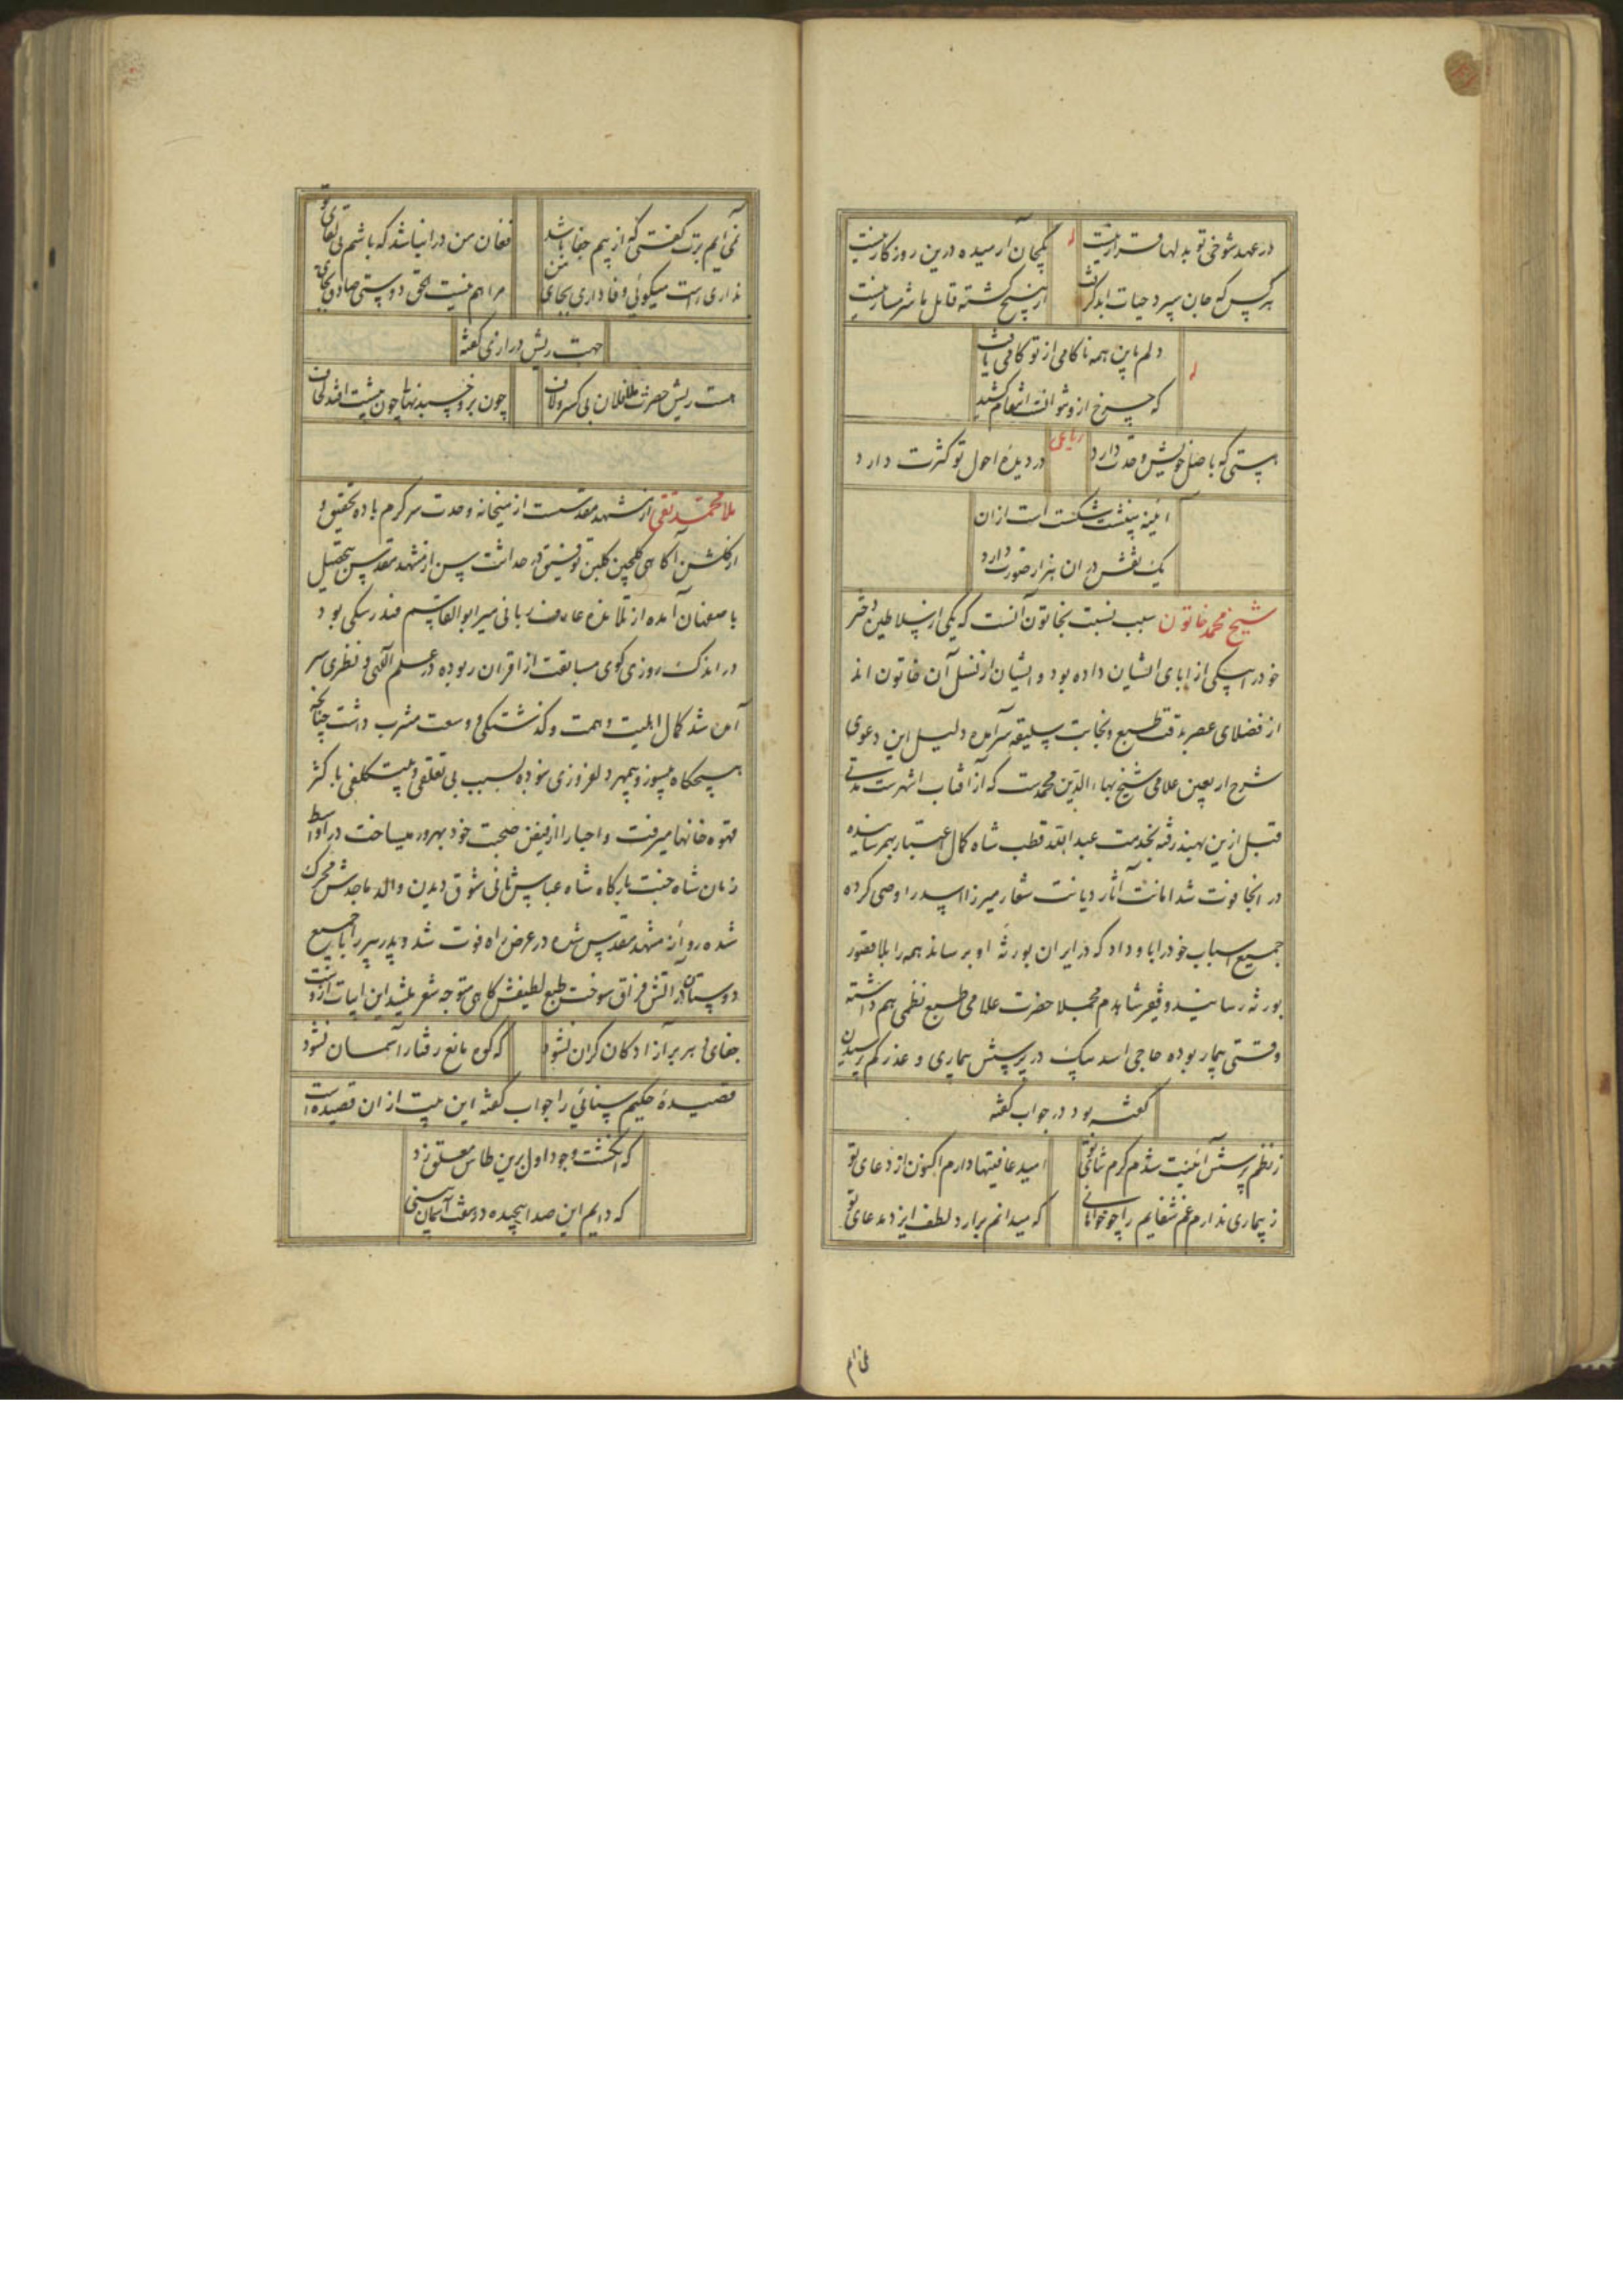 در عهد شوخی تو بدلها قرار نیست
یکجان آرمیده درین روزکار نیست
هر کس که جان سپرد حیات ابد کرفت
از هیچ کشته قاتل ما شرمسار نیست
دلم باین همه ناکامی از تو کامی یافت
که چرخ ازو نتوانست انتقام کشید
رباعی
هستی که با صل خویش وحدت دارد
در دیدهٔ احول تو کثرت دارد
آئینه بینشت شکست است ازان
یک نقش دران هزار صورت دارد
شیخ محمد خاتون سبب نسبت بخاتون آنست که یکی از سلاطین دختر
خود را بیکی از ابای ایشان داده بود و ایشان از نسل آن خاتون اند
از فضلای عصر بدقت طبع و نجابت سلیقه سرآمده دلیل این دعوی
شرح اربعین علامی شیخ بهاء الدین محمدست که از آفتاب اشهرست مدتی
قبل ازین بهند رفته بخدمت عبد الله قطب شاه کمال اعتبار بهمرسانیده
در انجا فوت شد امانت آثار دیانت شعار میرزا اسد را وصی کرده
جمیع اسباب خود را باو داد که در ایران بورثه او برساند همه را بلا قصور
بورثه رسانید و فقیر شاهدم مجملا حضرت علامی طبع نظمی هم داشته
وقتی بیمار بوده حاجی اسد بیک در پرسش بیماری و عذر کم پرسیدن
کفته بود در جواب کفته
ز نظم پرسش آئینت شدم کرم ثنای تو
امید عافیتها دارم اکنون از دعای تو
ز بیماری ندارم غم شفایم را چو خواهانی
که میدانم برارد لطف ایزد مدعای تو
نمی آیم برت کفتی که از بیم جفا باشد
فغان من دران باشد که باشم بی لقای تو
نداری راست میکوئی وفاداری بجای من
مرا هم نیست الحق دوستی صادق بجای تو
جهت ریش درازی کفته
هست ریش حضرت ملا فلان بی کسر و لاف
چون بروخسبد نهالی چون به پشت افتد لحاف
ملا محمد تقی از مشهد مقدسست از میخانه وحدت سرکرم باده تحقیق و
از کلشن آکاهی کلچین کلبن توفیق در حداثت سن از مشهد مقدس بتحصیل
باصفهان آمده از تلامذه عارف ربانی میر ابوالقاسم فندرسکی بود
در اندک روزی کوی مسابقت از اقران ربوده در علم الهی و نظری سر
آمن شد کمال اهلیت و همت و کذشتکی و وسعت مشرب داشت چنانچه
هیچکاه بیسوز و بیمهر دلفروزی نبوده بسبب بی تعلقی و بیتکلفی باکثر
قهوه خانها میرفت و احبا را از فیض صحبت خود بهره ور میساخت در اواسط
زمان شاه جنت بارکاه شاه عباس ثانی شوق دیدن والد ماجدش محرک
شده روانه مشهد مقدس شده در عرض راه فوت شد و پدر پیر را با جمیع
دوستان در آتش فراق سوخت طبع لطیفش کاهی متوجه شعر میشد این ابیات ازوست
جفای دهر بر آزادکان کران نشود
که کوه مانع رفتار آسمان نشود
قصیدهٔ حکیم سنائی را جواب کفته این بیت ازان قصیده است
که انکشت وجود اول برین طاس معلق زد
که دایم این صدا پیچیده در هفت آسمان بینی